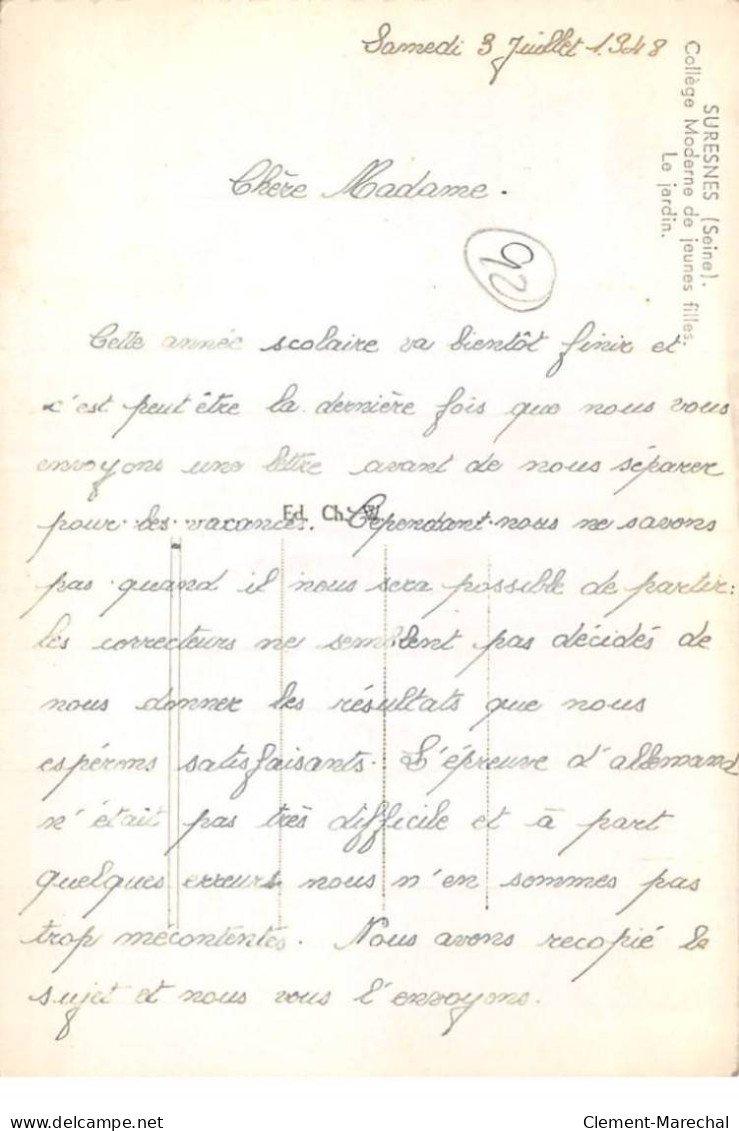 Samedi 3 Juillet 1948
SURESNES (Seine).
Collège Moderne de jeunes filles.
Le jardin.
Chère Madame.
92
Cette année scolaire va bientôt finir et
c'est peut être la dernière fois que nous vous
envoyons une lettre avant de nous séparer
pour les vacances. Cependant nous ne savons
Ed. Ch. W
pas quand il nous sera possible de partir :
les correcteurs ne semblent pas décidés de
nous donner les résultats que nous
espérons satisfaisants. L'épreuve d'allemand
n'était pas très difficile et à part
quelques erreurs nous n'en sommes pas
trop mécontentes. Nous avons recopié le
sujet et nous vous l'envoyons.
Clement-Marechal